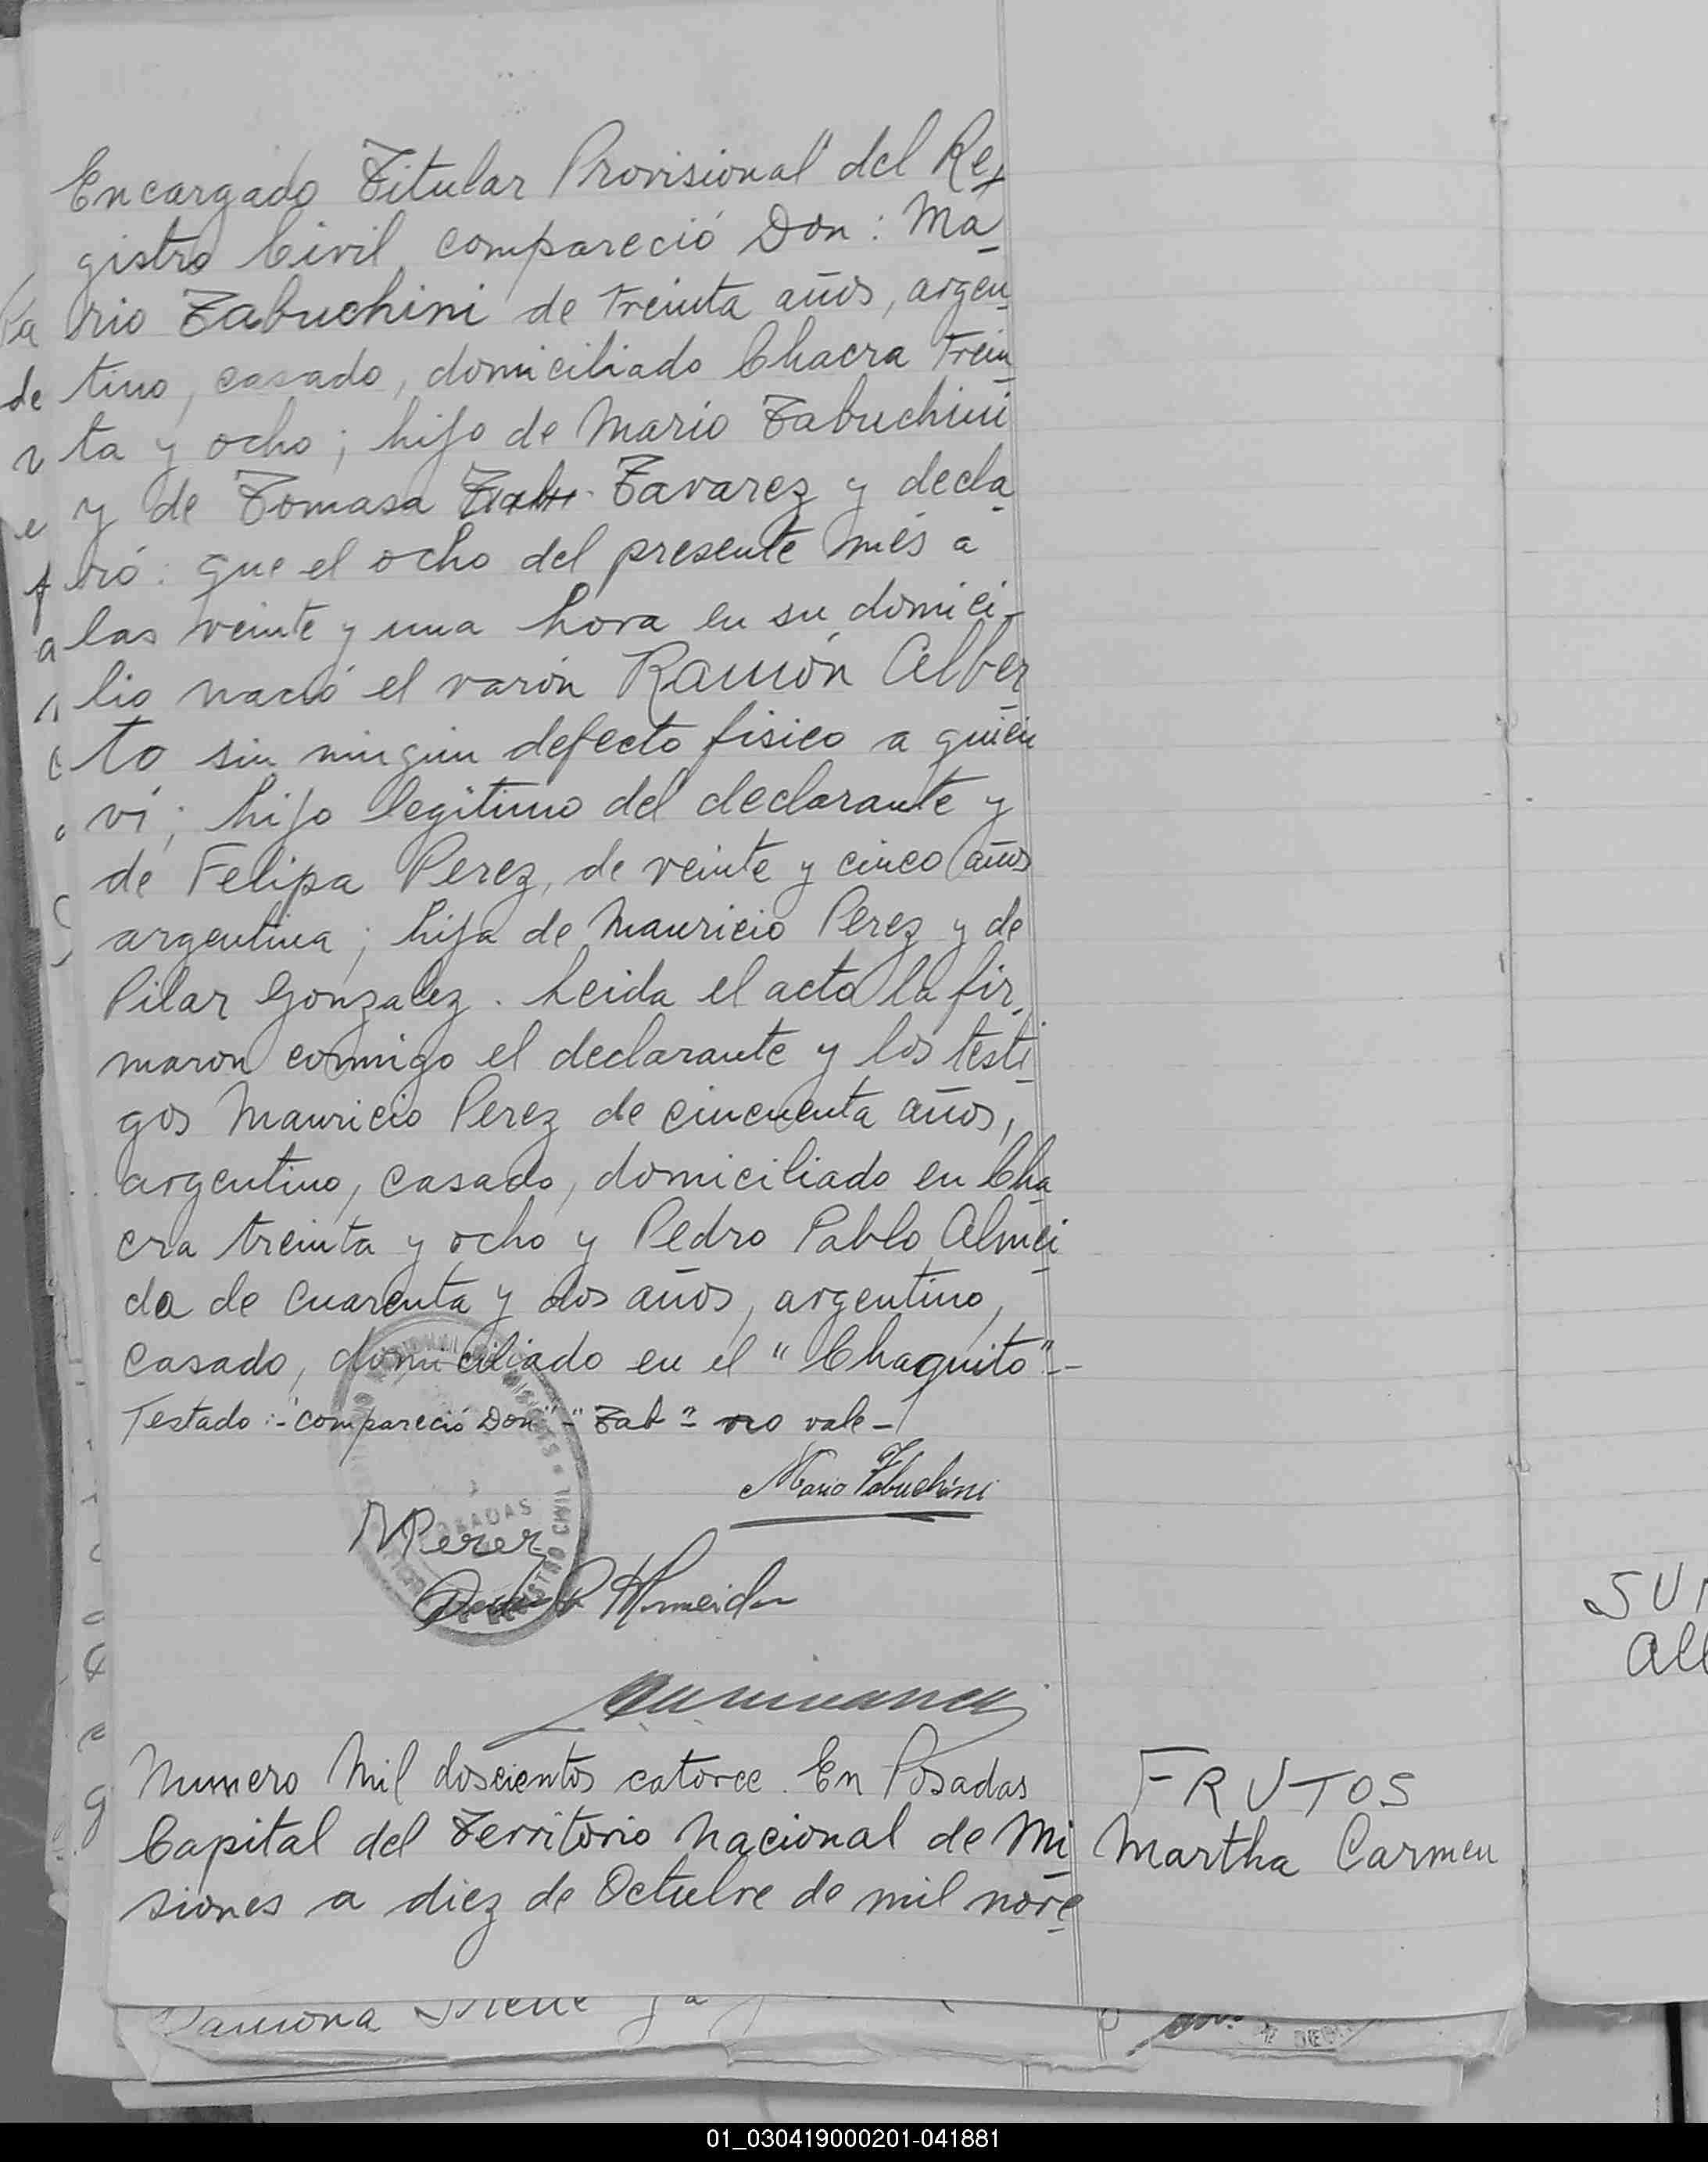 Encargado Titular Provisional del Re-
gistro Civil, compareció Don: Ma-
rio Tabuchini de treinta años, argen-
tino, casado, domiciliado Chacra trein-
ta y ocho; hijo de Mario Tabuchini
y de Tomasa Tab Tavarez y decla-
ró: que el ocho del presente més a
las veinte y una hora en su domici-
lio nació el varón Ramón Alber-
to sin ningun defecto fisico a quien
ví; hijo legitimo del declarante y
de Felipa Perez, de veinte y cinco años
argentina; hija de Mauricio Perez y de
Pilar Gonzalez. Leida el acta la fir-
maron conmigo el declarante y los testi-
gos Mauricio Perez de cincuenta años,
argentino, casado, domiciliado en Cha-
cra treinta y ocho y Pedro Pablo Almei-
da de cuarenta y dos años, argentino,
casado, domiciliado en el "Chaquito"-
Testado:-"compareció Don"-"Tab"- no vale-
Mario Tabuchini
MPerez
Pedro P Almeida
POSADAS
REGISTRO CIVIL
Numero Mil doscientos catorce. En Posadas
Capital del Territorio Nacional de Mi-
siones a diez de Octubre de mil nove-
FRUTOS
Martha Carmen
Ramona Irene
01_030419000201-041881